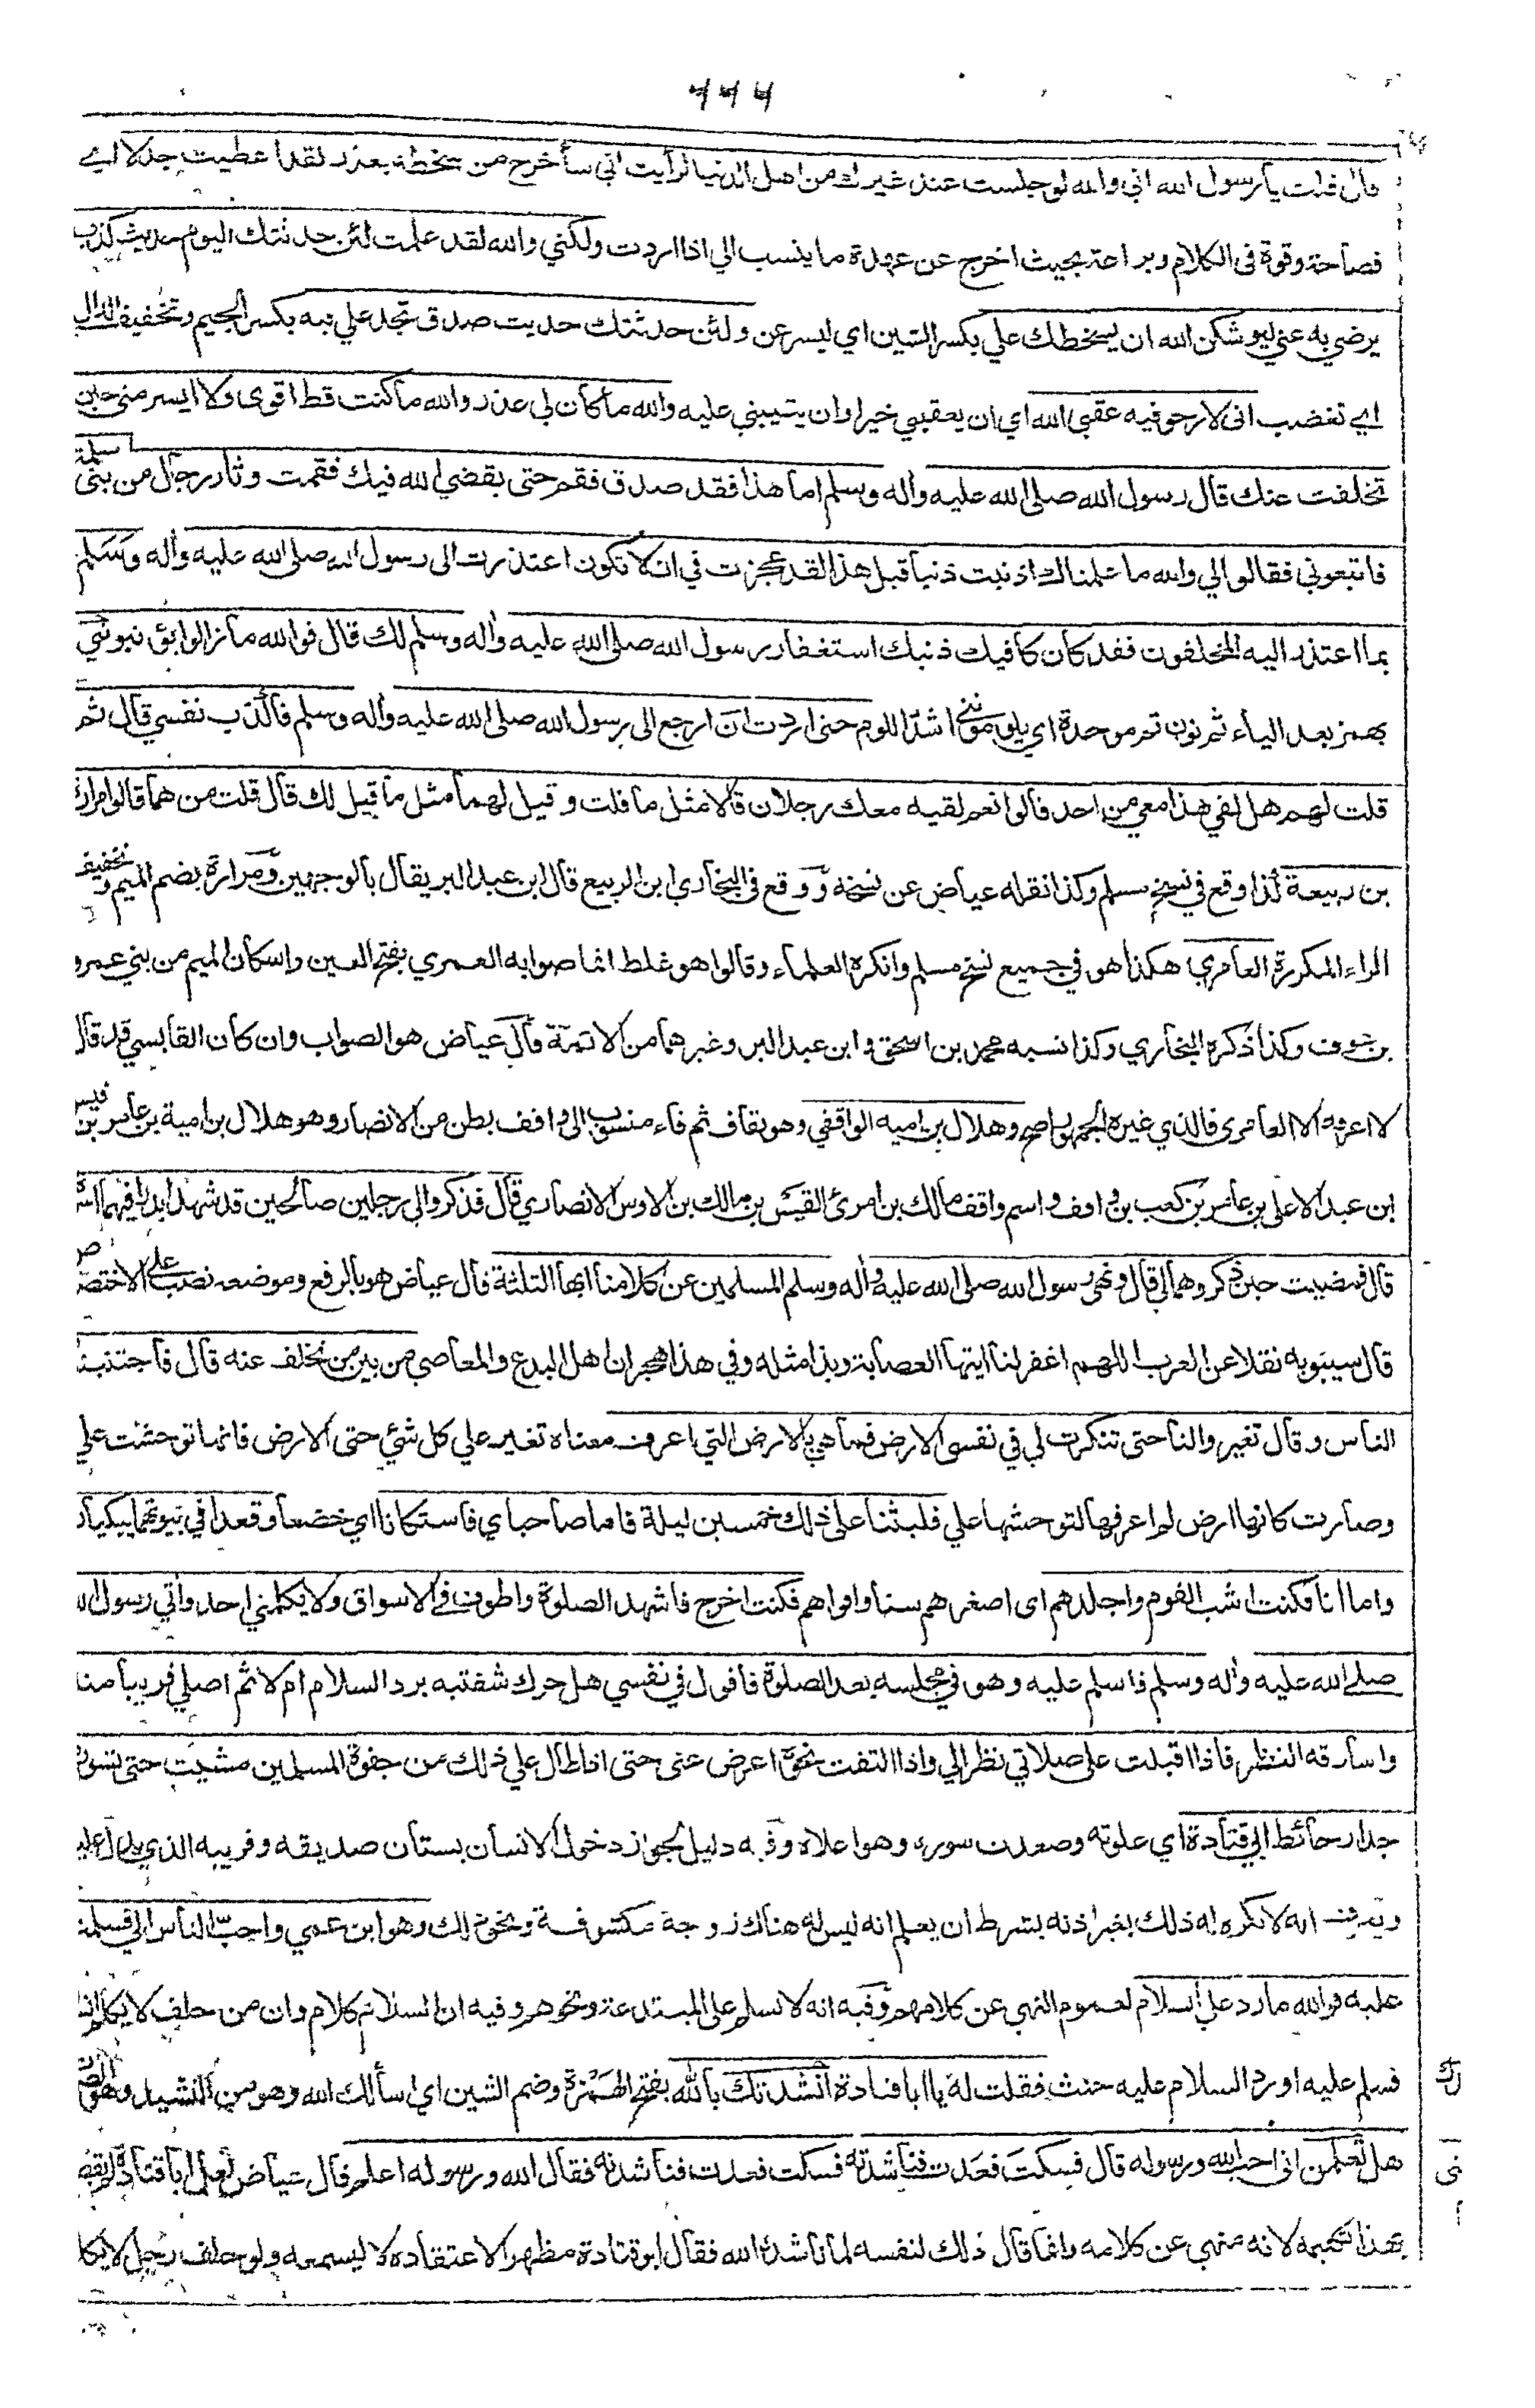 ٦٦٦
قال قلت يا رسول الله اني والله لو جلست عند غيرك من اهل الدنيا لرأيت اني سأخرج من سخطه بعذر لقد اعطيت جدلا اے
فصاحة وقوة فى الكلام وبراعة بحيث اخرج عن عهدة ما ينسب الي اذا اردت ولكني والله لقد علمت لئن حدثتك اليوم حديث كذب
يرضى به عني ليوشكن الله ان يسخطك علي بكسر الشين اي ليسرعن ولئن حدثتك حديث صدق تجد علي فيه بكسر الجيم وتخفيف الدال
اي تغضب انى لارجو فيه عقبى الله اي ان يعقبني خيرا وان يثيبني عليه والله ما كان لى عذر والله ما كنت قط اقوى ولا ايسر مني حين
تخلفت عنك قال رسول الله صلى الله عليه واله وسلم اما هذا فقد صدق فقم حتى يقضي الله فيك فقمت وثار رجال من بنى سلمة
فاتبعوني فقالوا لي والله ما علمناك اذنبت ذنبا قبل هذا لقد عجزت في ان لا تكون اعتذرت الى رسول الله صلى الله عليه واله وسلم
بما اعتذر اليه المخلفون فقد كان كافيك ذنبك استغفار رسول الله صلى الله عليه واله وسلم لك قال فوالله ما زالوا يؤنبونني
بهمز بعد الياء ثم نون ثم موحدة اي يلومونني اشد اللوم حتى اردت ان ارجع الى رسول الله صلى الله عليه واله وسلم فاكذب نفسي قال ثم
قلت لهم هل لقي هذا معي من احد قالوا نعم لقيه معك رجلان قالا مثل ما قلت وقيل لهما مثل ما قيل لك قال قلت من هما قالوا مرارة
بن ربيعة كذا وقع في نسخ مسلم وكذا نقله عياض عن نسخه ووقع فى البخاري ابن الربيع قال ابن عبد البر يقال بالوجهين ومرارة بضم الميم وتخفيف
الراء المكررة العامري هكذا هو في جميع نسخ مسلم وانكره العلماء وقالوا هو غلط انما صوابه العمري بفتح العين واسكان الميم من بني عمرو
بن عوف وكذا ذكره البخاري وكذا نسبه محمد بن اسحق وابن عبد البر وغيرهما من الائمة قال عياض هو الصواب وان كان القابسي قد قال
لا اعرفه الا العامرى فالذي غيره الجمهور اصح وهلال بن اميه الواقفي وهو بقاف ثم فاء منسوب الى واقف بطن من الانصار وهو هلال بن امية بن عامر بن قيس
ابن عبد الاعلى بن عامر بن كعب بن واقف واسم واقف مالك بن امرئ القيس بن مالك بن الاوس الانصاري قال فذكروا لي رجلين صالحين قد شهدا بدرا فيهما اسوة
قال فمضيت حين ذكروهما لي قال ونهى رسول الله صلى الله عليه واله وسلم المسلمين عن كلامنا ايها الثلثة قال عياض هو بالرفع وموضعه نصب على الاختص
قال سيبويه نقلا عن العرب اللهم اغفر لنا ايتها العصابة وهذا مثله وفي هذا هجران اهل البدع والمعاصي من بين من تخلف عنه قال فاجتنبنا
الناس وقال تغيروا لنا حتى تنكرت لي في نفسي الارض فما هي بالارض التي اعرف معناه تغير علي كل شئ حتى الارض فانها توحشت علي
وصارت كانها ارض لم اعرفها لتوحشها علي فلبثنا على ذلك خمسين ليلة فاما صاحباي فاستكانا اي خضعا وقعدا في بيوتهما يبكيان
واما انا فكنت اشب القوم واجلدهم اى اصغرهم سنا واقواهم فكنت اخرج فاشهد الصلوة واطوف في الاسواق ولا يكلمني احد وأتي رسول الله
صلى الله عليه واله وسلم فاسلم عليه وهو في مجلسه بعد الصلوة فاقول في نفسي هل حرك شفتيه برد السلام ام لا ثم اصلي قريبا منه
واسارقه النظر فاذا اقبلت على صلاتي نظر الي واذا التفت نحوه اعرض عنى حتى اذا طال علي ذلك من جفوة المسلمين مشيت حتى تسورت
جدار حائط ابي قتادة اي علوته وصعدت سوره وهو اعلاه وفيه دليل لجواز دخول الانسان بستان صديقه وقريبه الذي يدل عليه
ويعرف انه لا يكره له ذلك بغير اذنه بشرط ان يعلم انه ليس له هناك زوجة مكشوفة ونحو ذلك وهو ابن عمي واحب الناس الي فسلمت
عليه فوالله ما رد علي السلام لعموم النهي عن كلامهم وفيه انه لا يسلم على المبتدعة ونحوهم وفيه ان السلام كلام وان من حلف لا يكلم انسانا
فسلم عليه او رد السلام عليه حنث فقلت له يا ابا قتادة انشدتك بالله بفتح الهمزة وضم الشين اي اسألك الله وهو من النشيد وهو الصوت
هل تعلمن انى احب الله ورسوله قال فسكت فعدت فناشدته فسكت فعدت فناشدته فقال الله ورسوله اعلم قال عياض لعل ابا قتادة لم يقصد
بهذا تكليمه لانه منهي عن كلامه وانما قال ذلك لنفسه لما ناشده الله فقال ابو قتادة مظهرا لاعتقاده لا ليسمعه ولو حلف رجل لا يكلم